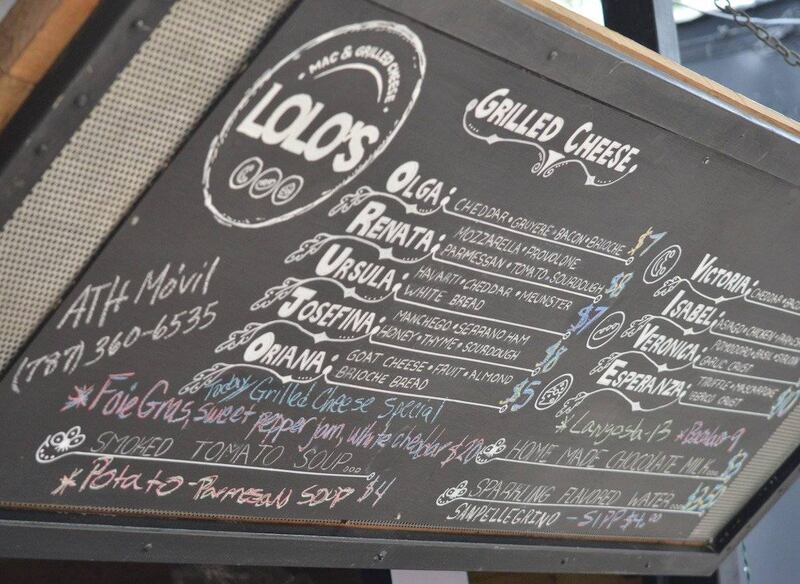 MAC & GRILLED CHEESE
LOLO'S
GRILLED CHEESE
OLGA; CHEDDAR • GRUYERE • BACON • BRIOCHE $7
RENATA; MOZZARELLA • PROVOLONE
PARMESSAN • TOMATO • SOURDOUGH
URSULA; HAVARTI • CHEDDAR • MEUNSTER
WHITE BREAD $7
JOSEFINA; MANCHEGO • SERRANO HAM
HONEY • THYME • SOURDOUGH $8
ORIANA; GOAT CHEESE • FRUIT • ALMOND
BRIOCHE BREAD $5
VICTORIA; CHEDDAR
ISABEL; ASIAGO • CHICKEN
VERONICA; POMODORO • BASIL
GARLIC CRUST
ESPERANZA; TRUFFLE • MASCARPONE
CRUST
ATH Móvil
(787) 360-6535
Today Grilled Cheese Special
*Foie Gras, sweet pepper jam, white cheddar $20
*Langosta-13
SMOKED TOMATO SOUP...
*Potato-Parmesan SOUP $4
HOME MADE CHOCOLATE MILK...
SPARKLING FLAVORED WATER...
SANPELLEGRINO - $4.00